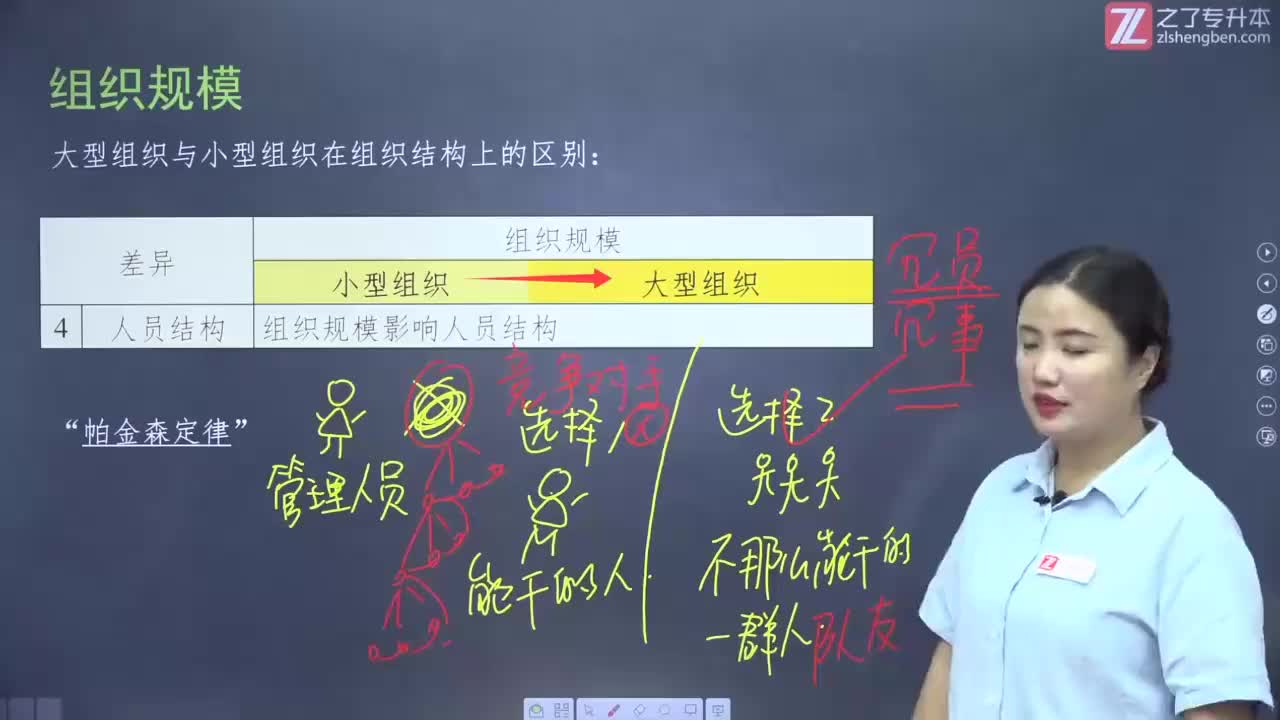 之了专升本
zlshengben.com
组织规模
大型组织与小型组织在组织结构上的区别：
差异
组织规模
小型组织
大型组织
4
人员结构
组织规模影响人员结构
“帕金森定律”
管理人员
竞争对手
选择人
能干的人
选择2
不那么能干的
一群人队友
冗员
冗事